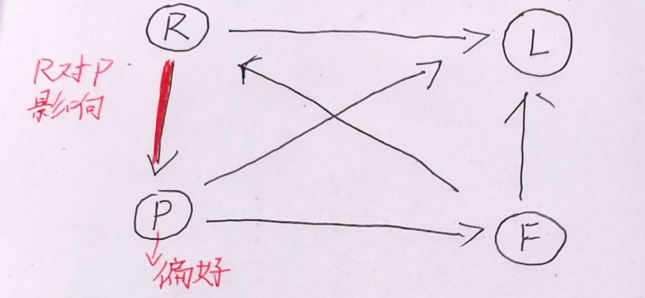 R
L
R对P
影响
P
F
偏好